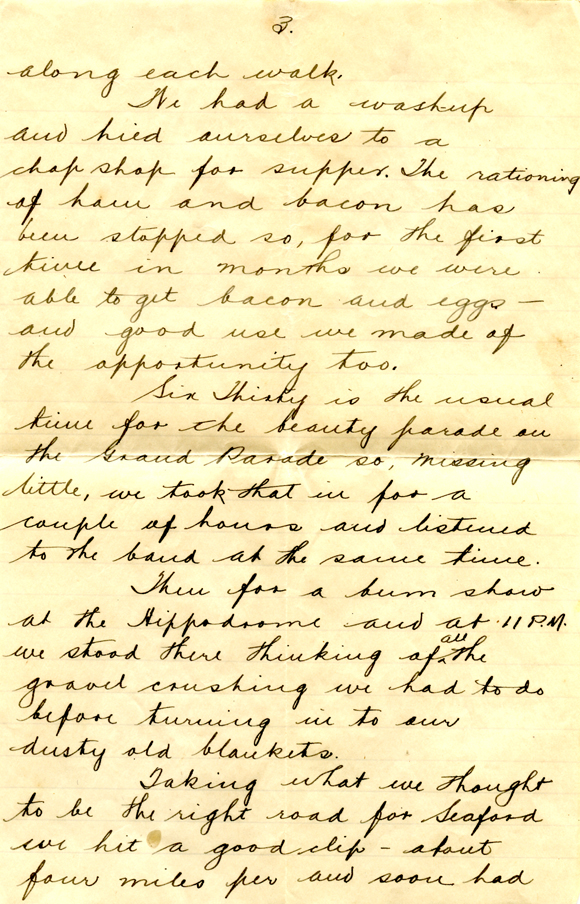 3.
along each walk.
We had a washup
and hied ourselves to a
chop shop for supper. The rationing
of ham and bacon has
been stopped so, for the first
time in months we were
able to get bacon and eggs –
and good use we made of
the opportunity too.
Six Thirty is the usual
time for the beauty parade on
the Grand Parade so, missing
little, we took that in for a
couple of hours and listened
to the band at the same time.
Then for a bum show
at the Hippodrome and at 11 P.M.
we stood there thinking of all the
gravel crushing we had to do
before turning in to our
dusty old blankets.
Taking what we thought
to be the right road for Seaford
we hit a good clip – about
four miles per and soon had